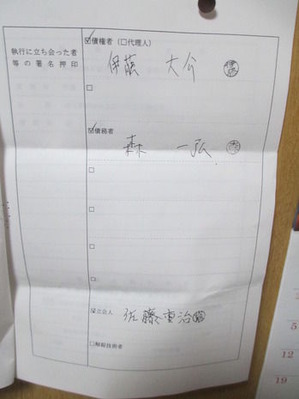 執行に立ち会った者
等の署名押印
☑債権者（□代理人）
伊藤 大介
☑債務者
森 一弘
□
□
□
□
☑立会人
佐藤 重治
□解錠技術者
5
12
19